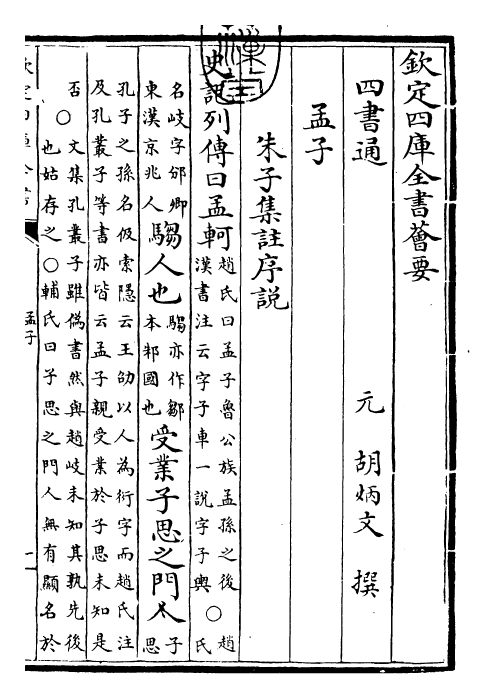 欽定四庫全書薈要
四書通 元 胡炳文 撰
孟子
朱子集註序説
史記列傳曰孟軻趙氏曰孟子魯公族孟孫之後漢書注云字子車一說字子輿〇趙氏
名岐字邠卿東漢京兆人騶人也騶亦作鄒本邾國也受業子思之門人子思
孔子之孫名伋索隱云王劭以人為衍字而趙氏注
及孔叢子等書亦皆云孟子親受業於子思未知是
否〇文集孔叢子雖偽書然與趙岐未知其孰先後
也姑存之〇輔氏曰子思之門人無有顯名於
孟子
一